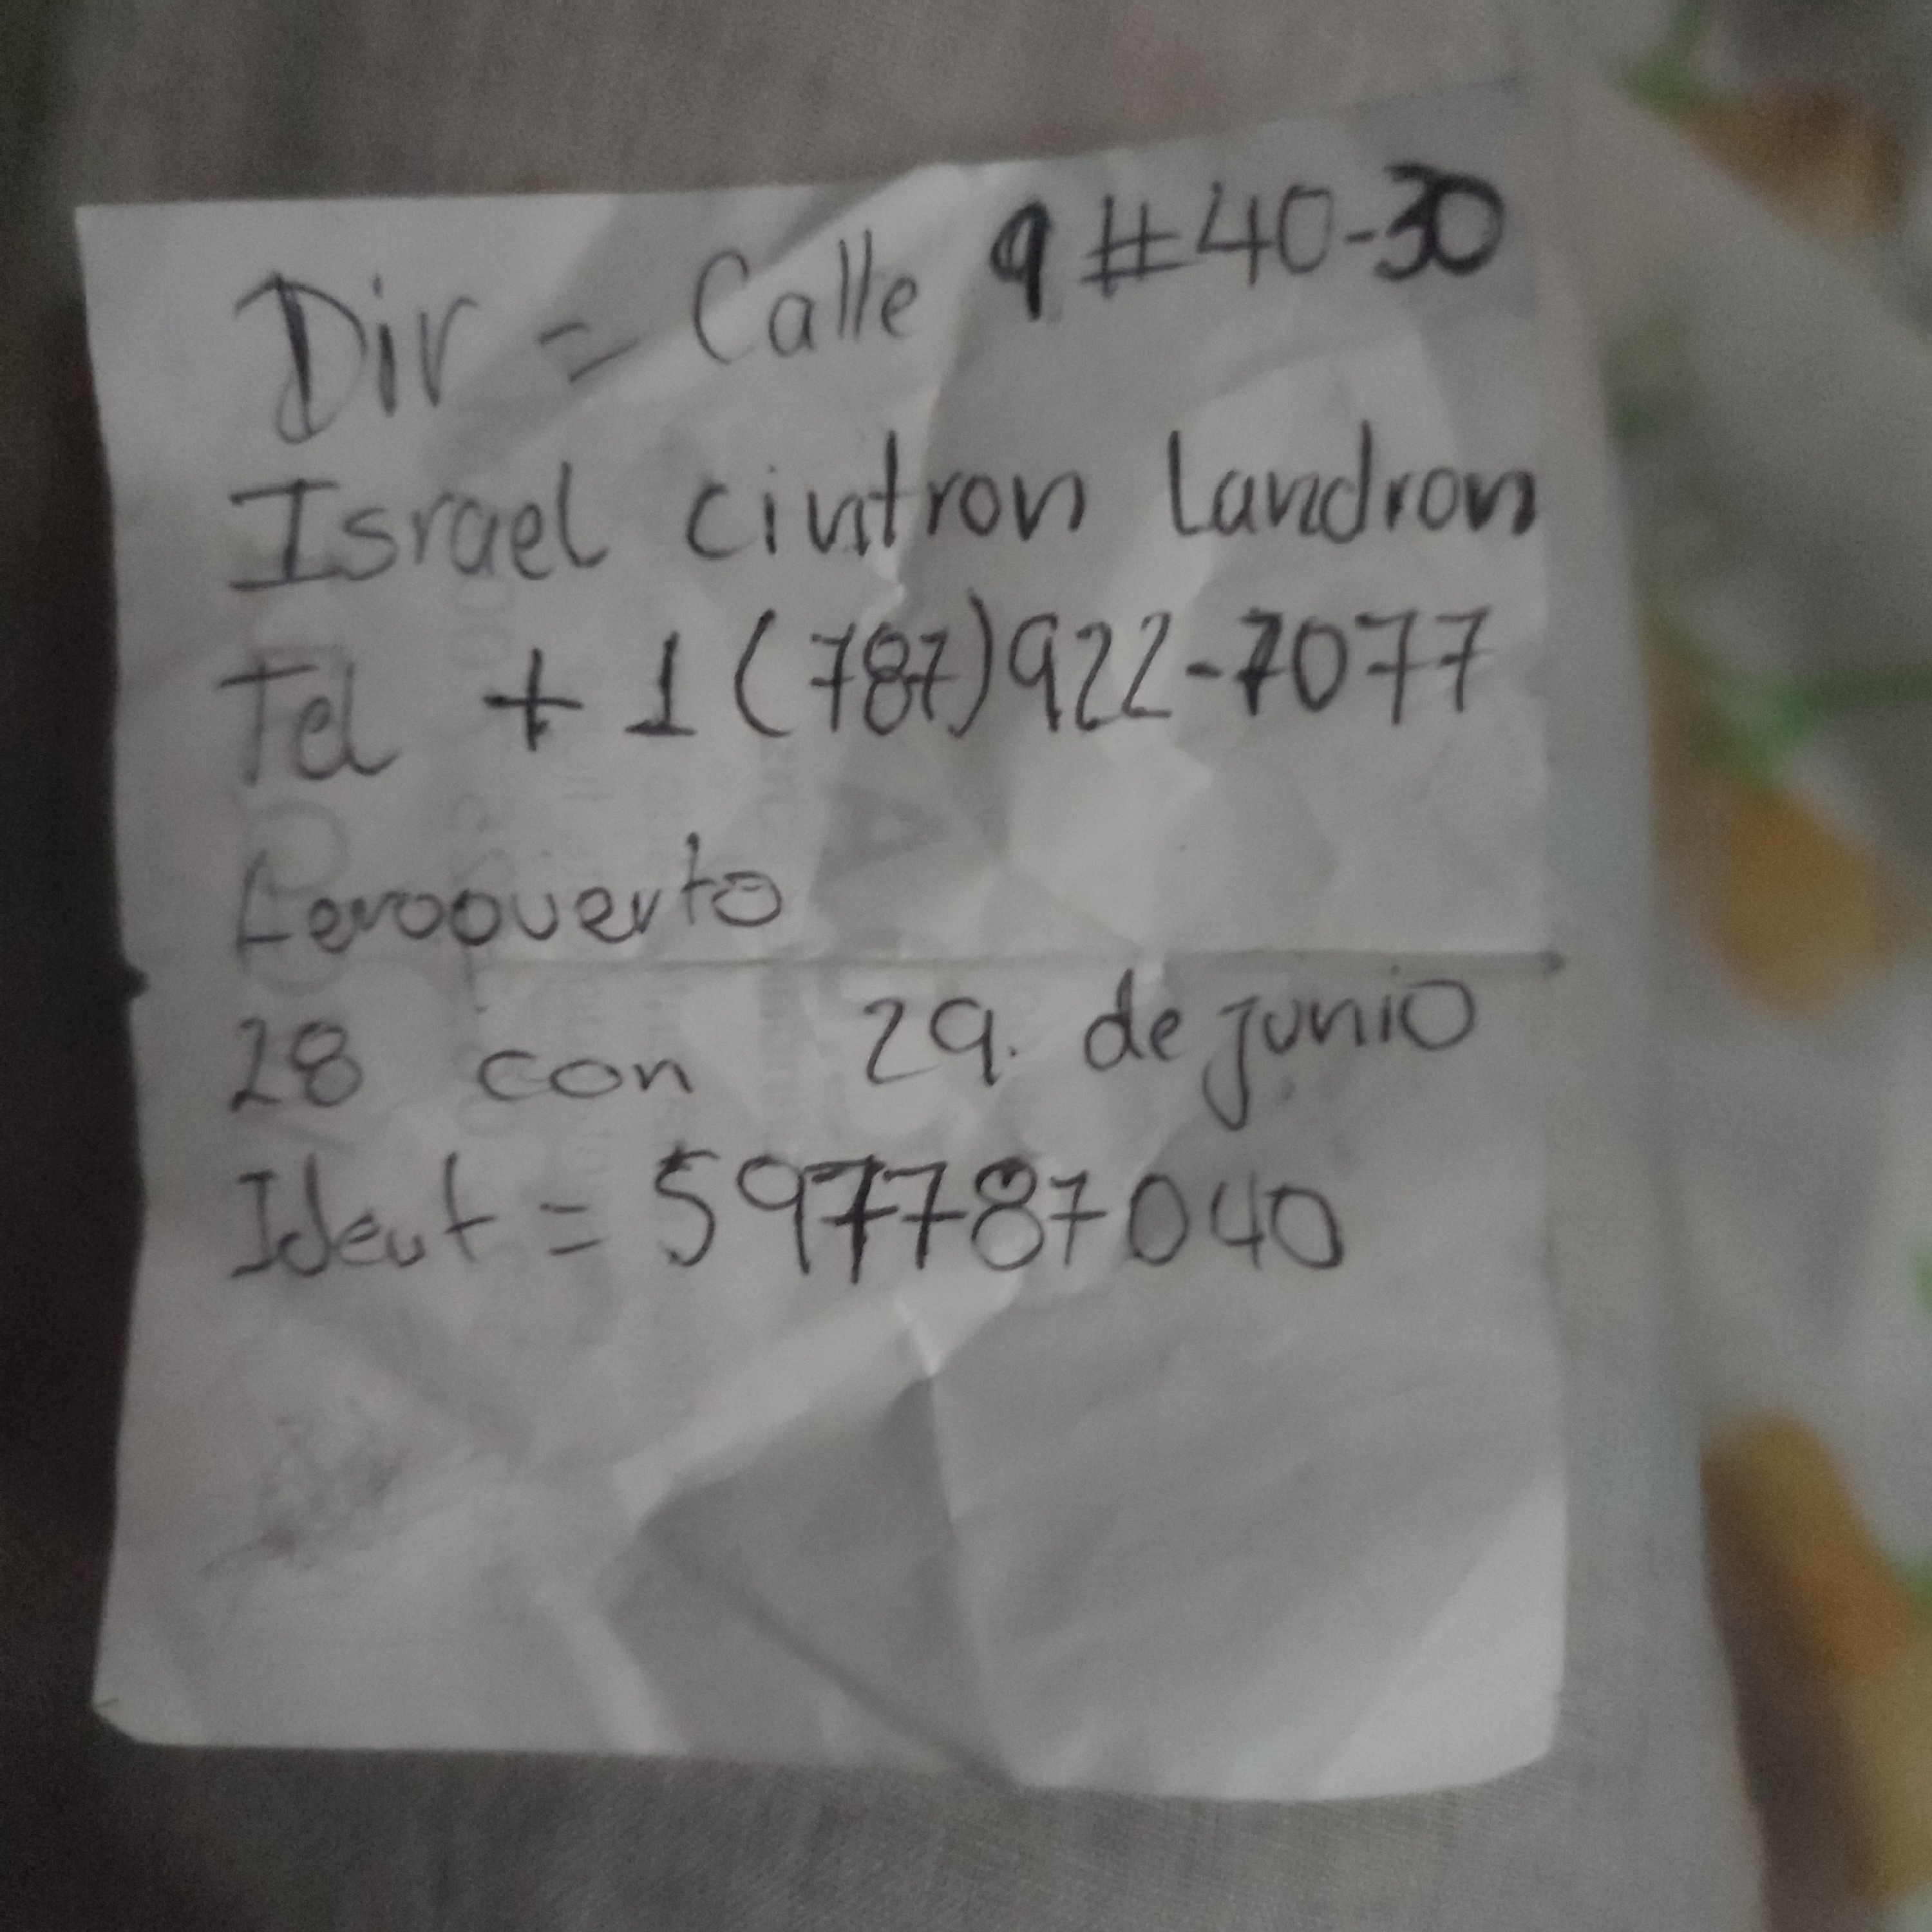 Dir = Calle 9 #40-30
Israel cintron Landron
Tel + 1 (787) 922-7077
Aeropuerto
28 con 29. de junio
Ident = 597787040